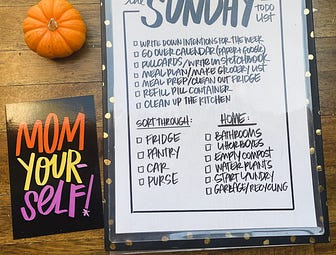 the
SUNDAY
TO DO LIST
WRITE DOWN INTENTIONS FOR THE WEEK
GO OVER CALENDAR (PAPER & GOOGLE)
PULL CARDS / WRITE IN SKETCHBOOK
MEAL PLAN / MAKE GROCERY LIST
MEAL PREP / CLEAN OUT FRIDGE
REFILL PILL CONTAINER
CLEAN UP THE KITCHEN
SORT THROUGH:
FRIDGE
PANTRY
CAR
PURSE
HOME:
BATHROOMS
LITTERBOXES
EMPTY COMPOST
WATER PLANTS
START LAUNDRY
GARBAGE / RECYCLING
MOM
YOUR-
SELF!